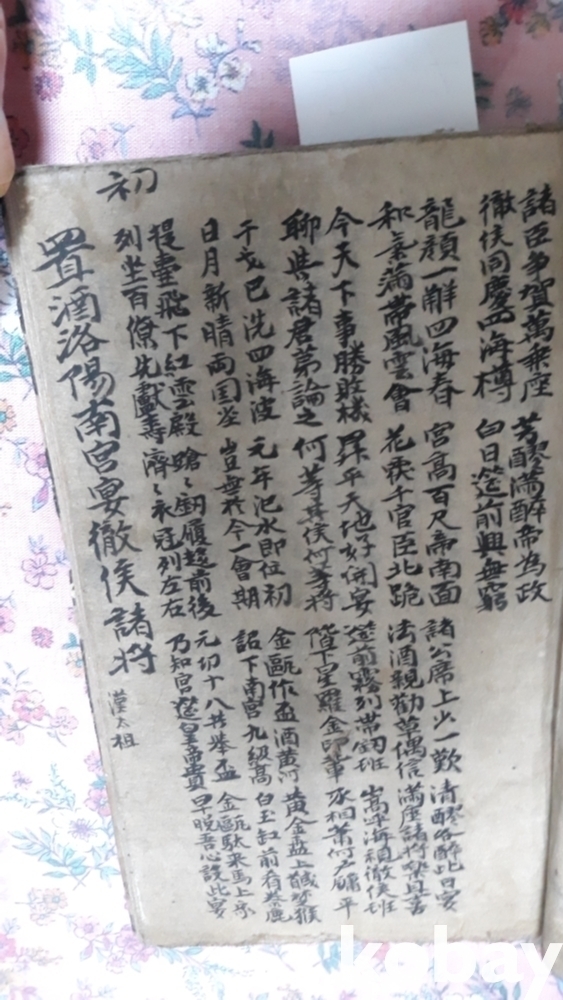 諸臣爭賀萬乘座 芳醪滿醉帝為政
徹侯同慶四海樽 白日筵前興無窮
龍顔一解四海春 宮高百尺帝南面 諸公席上少一歎 清醪各醉此日宴
和氣藹帶風雲會 花 千官臣北跪 法酒親勸 偶信 滿座諸將樂且喜
今天下事勝敗機 昇平天地好開宴 筵前霧列帶劒班 嵩呼海頌徹侯班
聊與諸君第論之 何等其侯何等將 階下星羅金印輩 丞相蕭何戶牖平
干戈已洗四海波 元年汜水即位初 金甌作盃酒黃河 黃金筵上馘楚猴
日月新晴兩国坐 豈無於今一會期 詔下南宮九級高 白玉缸前有秦鹿
提壺飛下紅雲殿 蹌〻劒履趨前後 元功十八共擧盃 金甌馱來馬上樂
列坐百僚先獻壽 濟〻衣冠列左右 乃知宮筵皇帝貴 曰 吾心設此宴
初
置酒洛陽南宮宴徹侯諸將 漢太祖
kobay